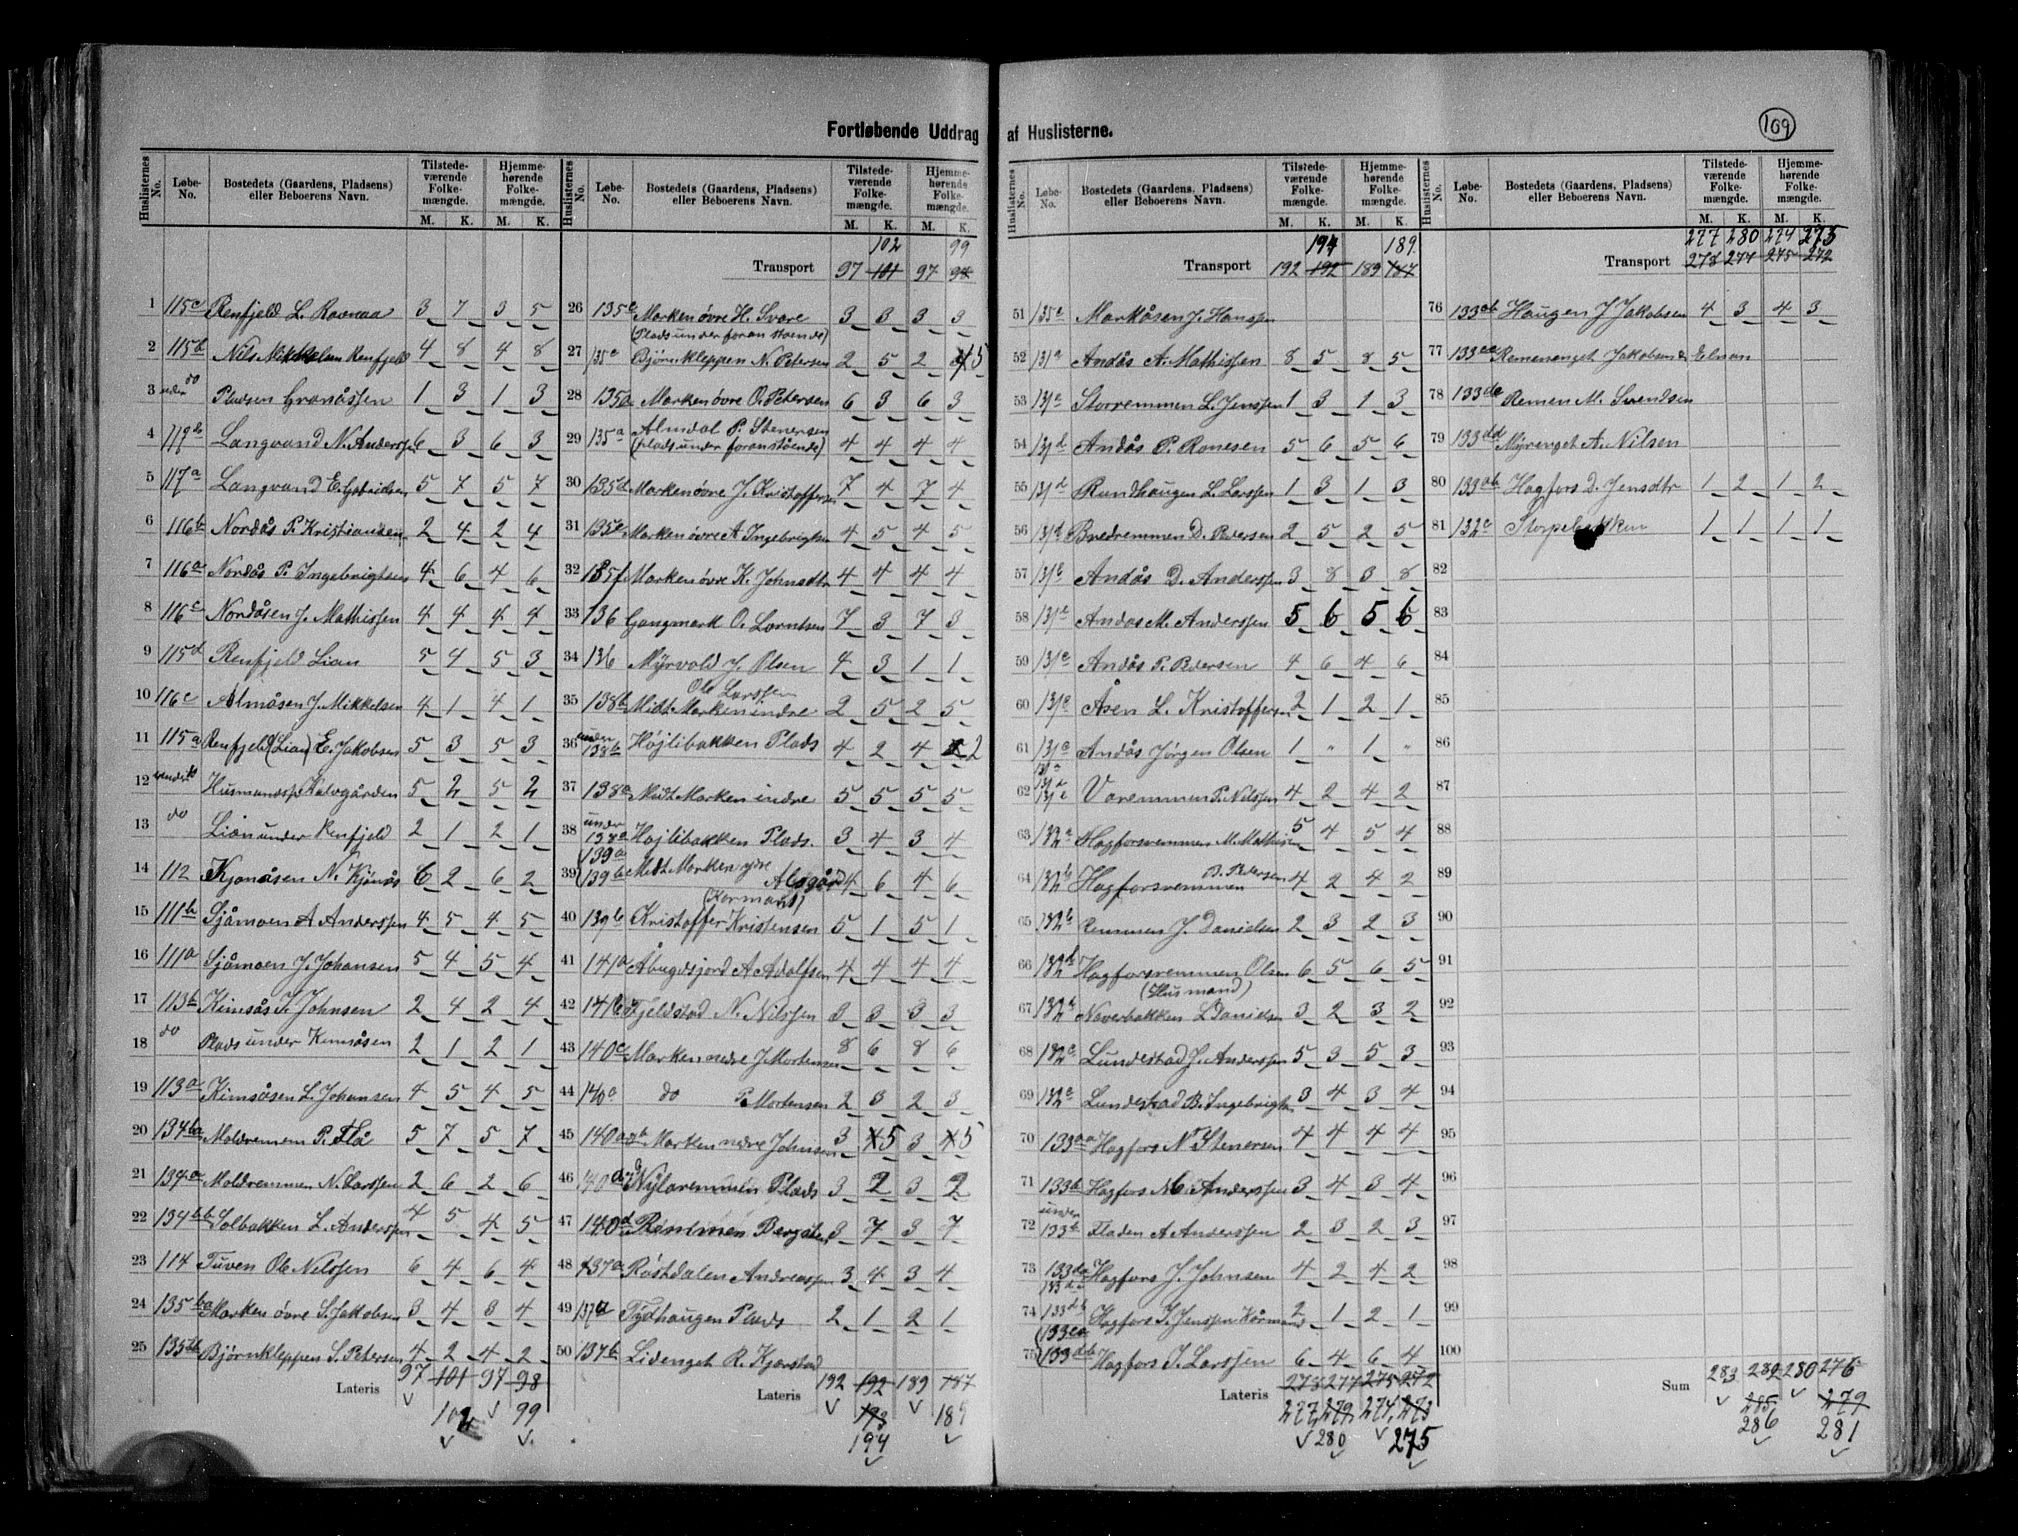 Fortløbende Uddrag af Huslisterne.
109
Huslisternes No. Løbe-No. Bostedets (Gaardens, Pladsens) eller Beboerens Navn. Tilstedeværende Folkemængde. M. K. Hjemmehørende Folkemængde. M. K.
1 115c Renfjeld L. Ravnaa 3 7 3 5
2 115b Nils Mikkelsen Renfjeld 4 8 4 8
3 under do Pladsen Granåssen 1 3 1 3
4 117b Langvand N. Anderssen 6 3 6 3
5 117a Langvand E. Gabrielsen 5 7 5 7
6 116b Nordås P. Kristiansen 2 4 2 4
7 116a Nordås P. Ingebrigtsen 4 6 4 6
8 116c Nordåsen J. Mathissen 4 4 4 4
9 115d Renfjeld Lian 5 4 5 3
10 116c Almåsen J. Mikkelsen 4 1 4 1
11 115a Renfjeld (Lian) E. Jakobsen 5 3 5 3
12 Husmandspl. Kalvgården 5 2 5 2
13 do Lian under Renfjeld 2 1 2 1
14 112 Kjønåsen N. Kjønås 6 2 6 2
15 111b Sjåmoen A Anderssen 4 5 4 5
16 111a Sjåmoen J. Johansen 5 4 5 4
17 113b Kimsås J. Johnsen 2 4 2 4
18 do Plads under Kimsåsen 2 1 2 1
19 113a Kimsåsen L. Johansen 4 5 4 5
20 134ba Moldremmen P. Flå 5 7 5 7
21 134a Moldremmen N. Larssen 2 6 2 6
22 134bb Solbakken L. Anderssen 4 5 4 5
23 114 Tuven Ole Nilssen 6 4 6 4
24 135ba Marken øvre S. Jakobsen 3 4 3 4
25 135bb Bjørnkleppen S. Petersen 4 2 4 2
Lateris 97 101 97 98
102 99
Huslisternes No. Løbe-No. Bostedets (Gaardens, Pladsens) eller Beboerens Navn. Tilstedeværende Folkemængde. M. K. Hjemmehørende Folkemængde. M. K.
102 99
Transport 97 101 97 98
26 135c Marken øvre H. Svare (Plads under foranstående) 3 3 3 3
27 135c Bjørnkleppen N. Petersen 2 5 2 5
28 135a Marken øvre O. Petersen 6 3 6 3
29 135a Almdal P. Stenersen (plads under foranstående) 4 4 4 4
30 135d Marken øvre J. Kristoffersen 7 4 7 4
31 135e Marken øvre A Ingebrigtsen 4 5 4 5
32 135f Marken øvre K. Johnsdtr 4 4 4 4
33 136 Gangmark O. Lorntsen 7 3 7 3
34 136 Myrvold J. Olsen 4 3 1 1
35 138b Midt Marken indre Ole Larssen 2 5 2 5
36 under 138b Højlibakken Plads 4 2 4 2
37 138a Midt Marken indre 5 5 5 5
38 under 138a Højlibakken Plads. 3 4 3 4
39 139a 139b Midt Marken ydre Alsgård 4 6 4 6
40 139b Kristoffer Kristensen (Kormand) 5 1 5 1
41 141a Åbygdsjord A Adolfsen 4 4 4 4
42 141b Fjeldstad N. Nilssen 3 3 3 3
43 140c Marken nedre J. Mortensen 8 6 8 6
44 140a do P. Mortensen 2 3 2 3
45 140ab Marken nedre Johnsen 3 5 3 5
46 140 Nylaremmen Plads 3 2 3 2
47 140d Remmen Bergitha 3 7 3 7
48 137a Røstdalen Andreassen 3 4 3 4
49 137a Tydhaugen Plads 2 1 2 1
50 137b Lidenget R. Kjørstad
Lateris 192 192 189 187
193 189
194
Huslisternes No. Løbe-No. Bostedets (Gaardens, Pladsens) eller Beboerens Navn. Tilstedeværende Folkemængde. M. K. Hjemmehørende Folkemængde. M. K.
194 189
Transport 192 192 189 187
51 135c Markåsen J. Hanssen
52 131a Andås A. Mathissen 8 5 8 5
53 131a Storremmen L. Jenssen 1 3 1 3
54 131d Andås P. Ronesen 5 6 5 6
55 131d Rundhaugen L. Larssen 1 3 1 3
56 131d Bredremmen D. Pedersen 2 5 2 5
57 131b Andås D. Anderssen 3 8 3 8
58 131c Andås M. Anderssen 5 6 5 6
59 131e Andås P. Pedersen 4 6 4 6
60 131e Åsen L. Kristoffersen 2 1 2 1
61 131a Andås Jørgen Olsen 1 " 1 "
62 131d 131c Voremmen P. Nilssen 4 2 4 2
63 132a Hagforsremmen M. Mathisen 5 4 5 4
64 132b Hagforsremmen B. Pedersen 4 2 4 2
65 132b Remmen J. Danielsen 2 3 2 3
66 132d Hagforsremmen Olsen 6 5 6 5
67 132d Naverbakken L Danielsen (Husmand) 3 2 3 2
68 132a Lundestad J. Anderssen 5 3 5 3
69 132a Lundestad B. Ingebrigtsen 3 4 3 4
70 133aa Hagfors N Stenersen 4 4 4 4
71 133b Hagfors M. Anderssen 3 4 3 4
72 under 133b Fladen A Anderssen 2 3 2 3
73 133da Hagfors J. Johnsen 4 2 4 2
74 133db Hagfors J. Jenssen Kårmand 2 1 2 1
75 133ca 133db Hagfors J. Larssen 6 4 6 4
Lateris 278 277 275 272
277 279 274 273
280 275
Huslisternes No. Løbe-No. Bostedets (Gaardens, Pladsens) eller Beboerens Navn. Tilstedeværende Folkemængde. M. K. Hjemmehørende Folkemængde. M. K.
277 280 274 275
Transport 278 277 275 272
76 133ab Haugen J Jakobsen 4 3 4 3
77 133ca Remenenget Jakobsen
78 133dc Remen M. Svendsen
79 133dd Myrenget A. Nilsen
80 133ab Hagfors D. Jensdtr 1 2 1 2
81 132c Storpebakken 1 1 1 1
82
83
84
85
86
87
88
89
90
91
92
93
94
95
96
97
98
99
100
Sum 283 282 280 276
285 279
286 281